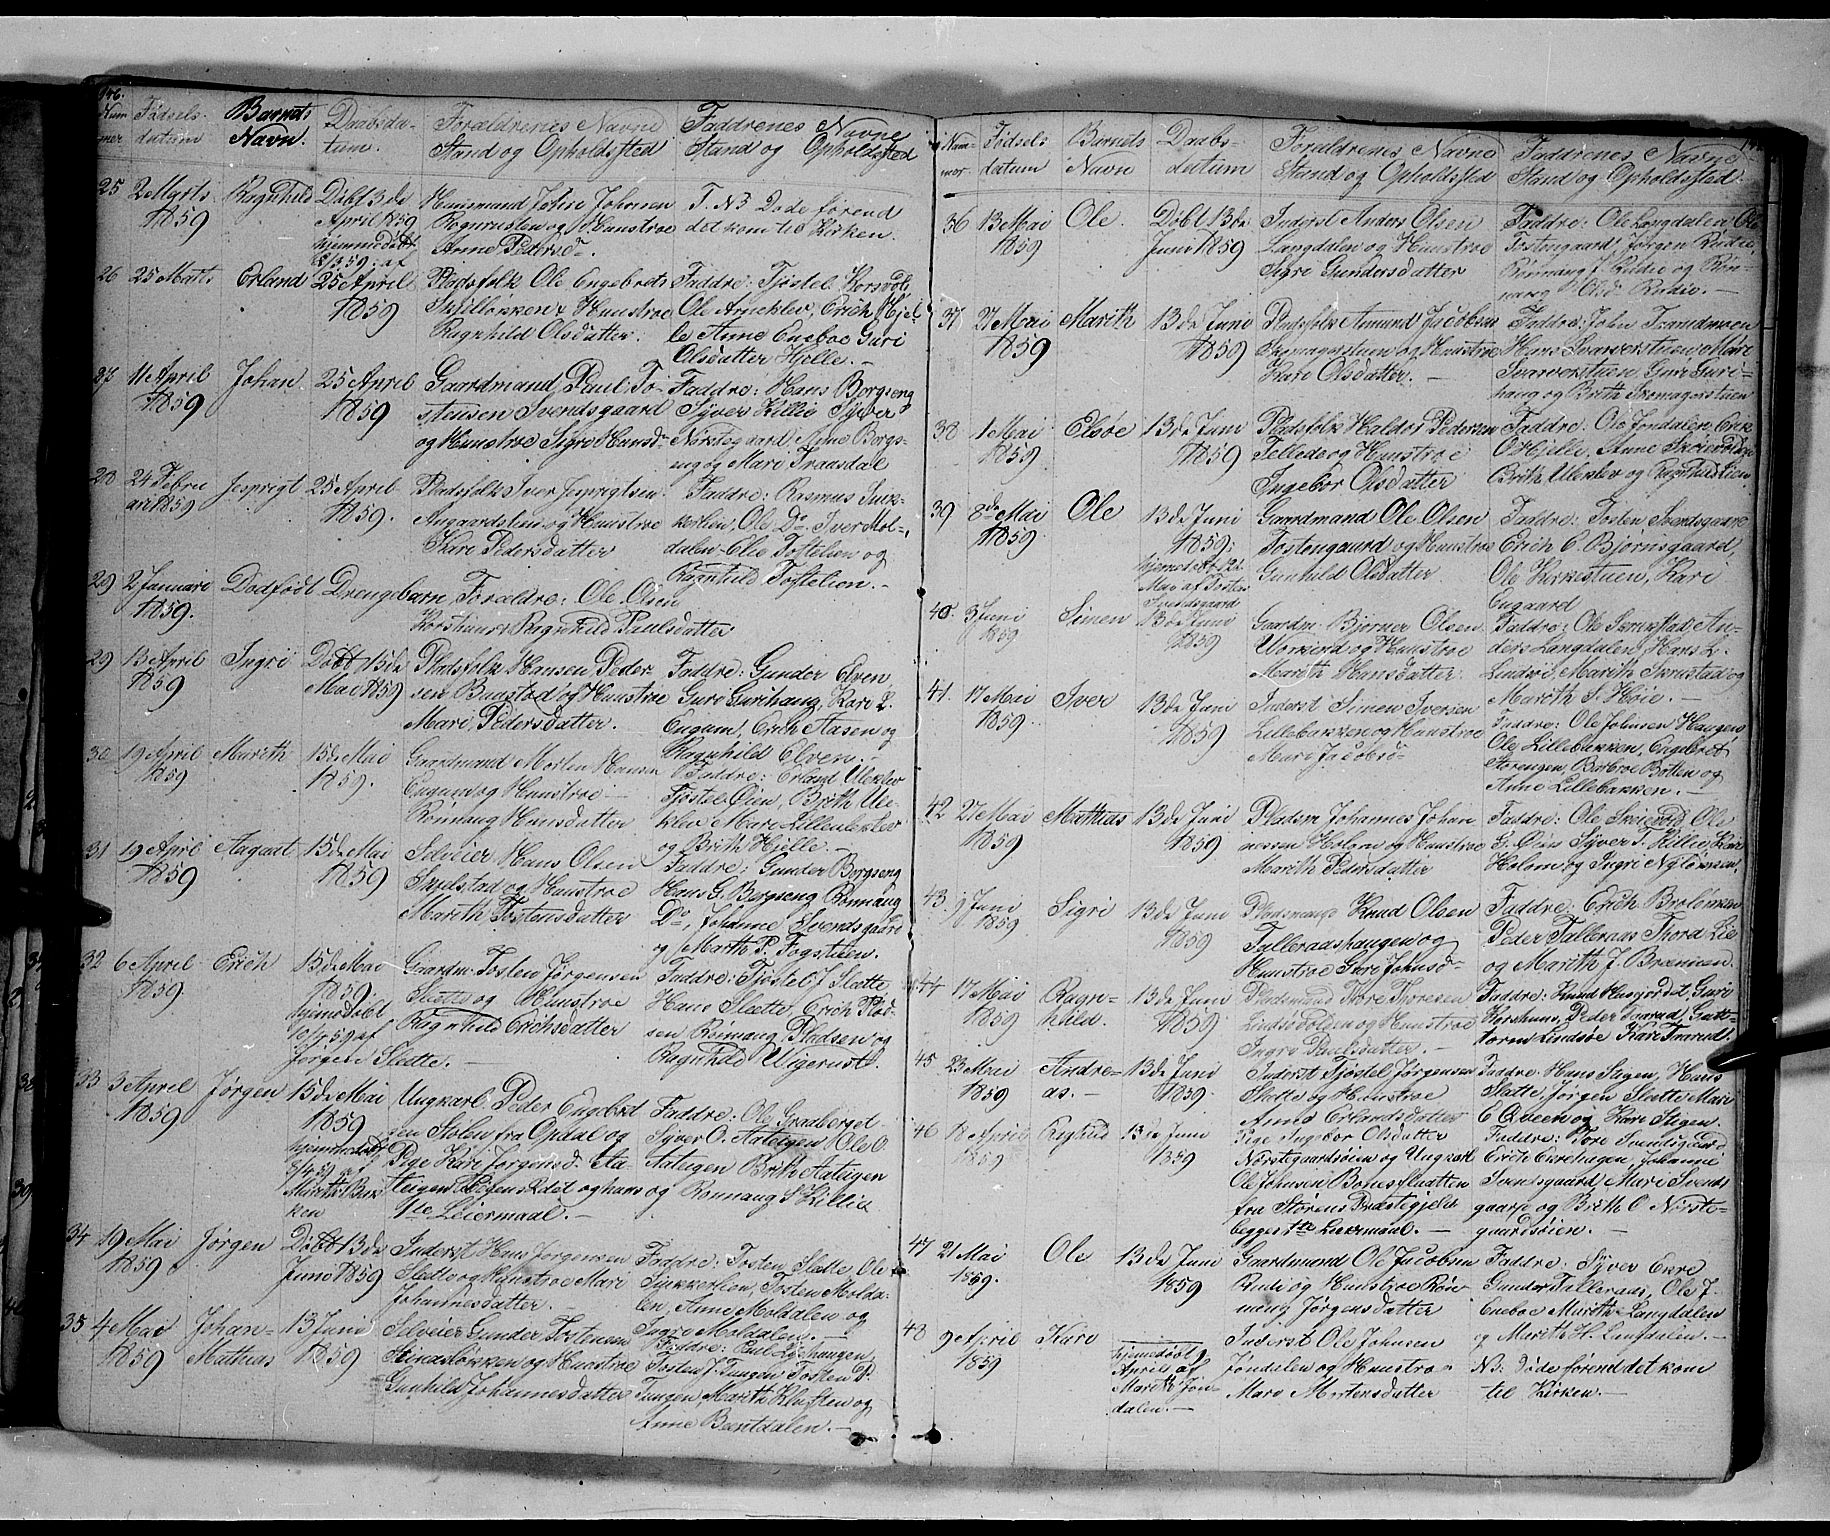 146.
Num
mer
Fødsels
datum
Barnets
Navn.
Daabsda-
tum.
Forældrenes Navne
Stand og Opholdssted
Faddrenes Navne
Stand og Opholdssted
25
2 Marts
1859
Ragnhild
Døbt 3 de
April 1859
hjemmedøbt
2/3 59 af
Huusmand John Johnsen
Rognruslen og Hustroe
Anne Pedersd.
T. N3 Døde førend
det kom til Kirken.
26
25 Marts
Erland
25 April
1859
Pladsfolk Ole Engebrets
Skjelløkken & Hustroe
Ragnhild Olsdatter.
Faddre: Tjøstel Korsvold
Ole Arneklev, Erich Hjel-
le Anne Eneboe Guri
Olsdatter Hjelle. –
27
11 April
1859
Johan
25 April
1859
Gaardmand Paul To-
stensen Svendsgaard
og Hustroe Sigri Hansd
Faddre: Hans Borgseng
Syver Killie Syver
Nørstegaard Anne Borgs-
eng og Mari Traasdal
28
24 Febru
ari 1859
Jesprigt
25 April
1859.
Pladsfolk Iver Jesprigtsen
Angaardslien og Hustroe
Kari Pedersdatter
Faddre: Rasmus Sink-
kerlien, Ole Do Iver Mol-
dalen Elie Toftelien og
Ragnhild Toftelien. –
29
2 Januari
1859.
Dødfødt Drengebarn, Forældre: Ole Olsen
Korshuus & Ragnhild Paulsdatter
29
13 April
1859
Ingri
Døbt 15 de
Mai 1859
Pladsfolk Hansen Peder-
sen Buustad og Hustroe
Mari Pedersdatter.
Faddre: Gunder Elven
Guro Gurihaug, Kari L.
Engum, Erich Aasen og
Ragnhild Elven. –
30
19 April
1859
Marith
15 de Mai
1859.
Gaardmand Morten Hansen
Engum og Hustroe –
Rønnaug Hansdatter
Faddre: Erland Uleklev
Tjøstel Øien, Brith Ule-
klev Mari Lilleuleklev
og Brith Hjelle. –
31
19 April
1859
Aagaat
15 de Mai
1859
Selveier Hans Olsen
Skjelstad og Hustroe
Marith Tostensdatter
Faddre: Gunder Borgseng
Hans G. Borgseng Rønnaug
Do, Johanne Svendsgaard
og Marth P. Fogstuen.
32
6 April
1859
Erich
15 de Mai
1859
hjemedøbt
10/4 59 af
Jørgen Slette.
Gaardm: Tosten Jørgensen
Slette og Hustroe
Ragnhild Erichsdatter
Faddre: Tjøstel J Slette,
Hans Slette, Erich Plad-
sen Rønnaug Pladsen og
Ragnhild Uigerust.
33
3 April
1859
Jørgen
15 de Mai
1859
hjemmedøbt
5/4 59 af
Marith Bak
ken
Ungkarl Peder Engebret
sen Stølen fra Opdal og
Pige Kari Jørgensd. Aa-
teigen Hegens 2det og hans
1ste Leiermaal. –
Faddre: Ole Graaberget
Syver O. Aateigen Ole O
Aateigen Brith Aateigen
og Rønnaug S Killie
34
19 Mai
1859
Jørgen
Døbt 13 de
Juni 1859
Inderst Hans Jørgensen
Slette og Hustroe Mari
Johannesdatter. –
Faddre: Tosten Slette, Ole
Sinkkerlien, Tosten Molda-
len, Anne Moldalen og
Ingri Moldalen. –
35
4 Mai
1859
Johan-
Mathias
13 Juni
1859
Selveier Gunder Tostensen
Steinsløkken og Hustroe
Gunhild Johannesdatter
Faddre: Paul Lyshaugen,
Tosten J. Tungen Tosten P.
Tungen, Marith Kluften og
Anne Bentdalen. –
Num-
mer.
Fødsels
datum
Barnets
Navn
Daabs-
datum
Forældrenes Navne
Stand og Opholdssted
Faddrenes Navne
Stand og Opholdssted.
36
13 Mai
1859
Ole.
Døbt 13 de
Juni 1859
Inderst Anders Olsen
Langdalen og Hustroe
Sigri Gundersdatter
Faddre: Ole Langdalen Ole
Tostengaard Jørgen Rudie
Rønnaug J. Rudie og Røn-
naug Olsd. Rudie. –
37
27 Mai
1859
Marith
13 de Juni
1859
Pladsfolk Amund Jacobsen
Skomagerstuen og Hustroe
Kari Olsdatter. –
Faddre: John Tramdmoen
Hans Svarverstuen Mari
Svarverstuen Guri Guri-
haug og Brith Skomagerstuen
38
1 Mai
1859
Elsøe
13 de Juni
1859
Pladsfolk Haldor Pedersen
Tellede og Hustroe
Ingebor Olsdatter
Faddre: Ole Jondalen, Erik
O Hjelle, Anne Skeievold
Brith Uleklev og Ragnhild Lien
39
8 de Mai
1859
Ole
13 de Juni
1859.
hjemedøbt 12
Mai af Tosten
Svendsgaard
Gaardmand Ole Olsen
Tostengaard og Hustroe
Gunhild Olsdatter
Faddre: Tosten Svendsgaard
Erich E. Bjørnsgaard,
Ole Kirkestuen, Kari
Engaard
40.
3 Juni
1859
Simen
13 de Juni
1859
Gaardm: Bjørner Olsen
Uvorjord og Hustroe
Marith Hansdatter.
Faddre: Ole Skrukstad, An-
ders Langdalen, Hans L.
Lindsø, Marith Skrustad og
Marith S. Høie. –
41.
17 Mai
1859.
Iver
13 de Juni
1859
Inderst Simen Iversen
Lillebakken og Hustroe
Mari Jacobsd
Faddre: Ole Johnsen Haugen
Ole Lillebakken, Engebret
Storengen, Barbroe Botten og
Anne Lillebakken. –
42
27 Mai
1859
Mathias
13 de Juni
1859
Pladsm Johannes Johan
nessen Holem og Hustroe
Marith Pedersdatter
Faddre: Ole Skeievold Ole
G. Øien Syver T. Killie, Kari
Holem og Ingri Nylømsen
43
9 Juni
1859
Sigri
13 de Juni
1859
Pladsmand Knud Olsen
Talleraashaugen og
Hustroe Guri Johnsd
Faddre: Erich Broløkken
Peder Talleraas Thord Lie
og Marith J. Brænnen.
44
17 Mai
1859
Ragn-
hild.
13 de Juni
1859.
Pladsmand Thore Thoresen
Lindsødolsen og Hustroe
Ingri Paulsdatter. –
Faddre: Knud Husejordet, Guri
Korshuus, Peder Traarud, Gutt-
torm Lindsøe Kari Traarud.
45
23 Mai
1859
Andre-
as. –
13 de Juni
1859
Inderst Tjøstel Jørgensen
Slette og Hustroe
Anne Erlandsdatter
Faddre: Hans Stigen, Hans
Slette, Jørgen Slette Mari
E Qveen og Kari Stigen.
46
18 April
1859
13 de Juni
1859
Pige Ingebor Olsdatter
Nørstegaardsøien og Ungkarl
Ole Johnsen Bones Sletten
fra Størens Præstegjeld
begges 1ste Leiermaal. –
Faddre: Tore Svendsgaard
Erich Ekrehagen, Johanne
Svendsgaard, Mari Svends
gaard og Brith O Nørste-
gaardsøien. –
47
21 Mai
1859.
Ole
13 de Juni
1859
Gaardmand Ole Jacobsen
Rudi og Hustroe Røn-
naug Jørgensdatter
Faddre: Syver Ekre
Gunder Talleraas, Ole J.
Eneboe Marith Langdalen
og Marith H. Langdalen. –
48
9 April
1859
Kari
hjemedøbt 9
April af
Marith Jon
dalen. –
Inderst Ole Johnsen
Jondalen og Hustroe
Mari Mortensdatter
N3: Døde førend det kom
til Kirken. –